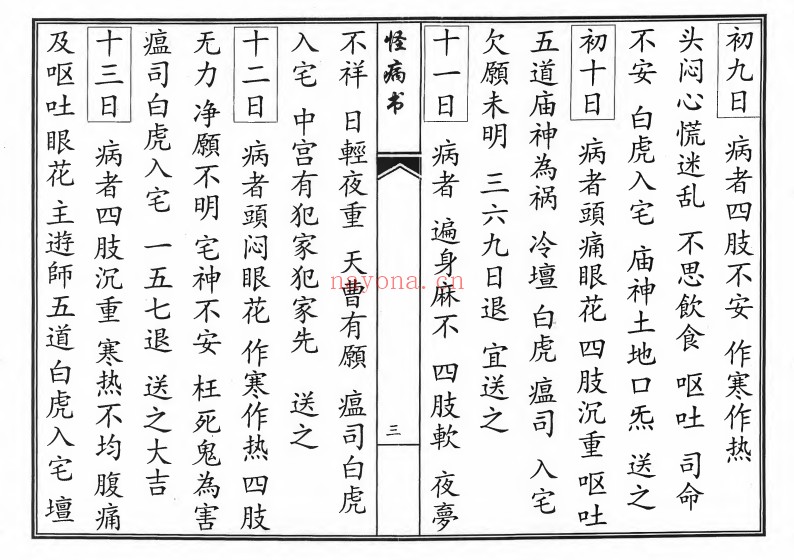 初九日 病者四肢不安 作寒作热
头闷心慌迷乱 不思飲食 呕吐 司命
不安 白虎入宅 庙神土地口炁 送之
初十日 病者頭痛眼花 四肢沉重 呕吐
五道庙神為祸 冷壇 白虎 瘟司 入宅
欠願未明 三六九日退 宜送之
十一日 病者 遍身麻不 四肢軟 夜夢
怪病书
三
不祥 日輕夜重 天曹有願 瘟司白虎
入宅 中宫有犯家犯家先 送之
十二日 病者頭闷眼花 作寒作热 四肢
无力 净願不明 宅神不安 枉死鬼為害
瘟司白虎入宅 一五七退 送之大吉
十三日 病者四肢沉重 寒热不均 腹痛
及呕吐 眼花 主遊師五道 白虎入宅 壇
nayona.cn